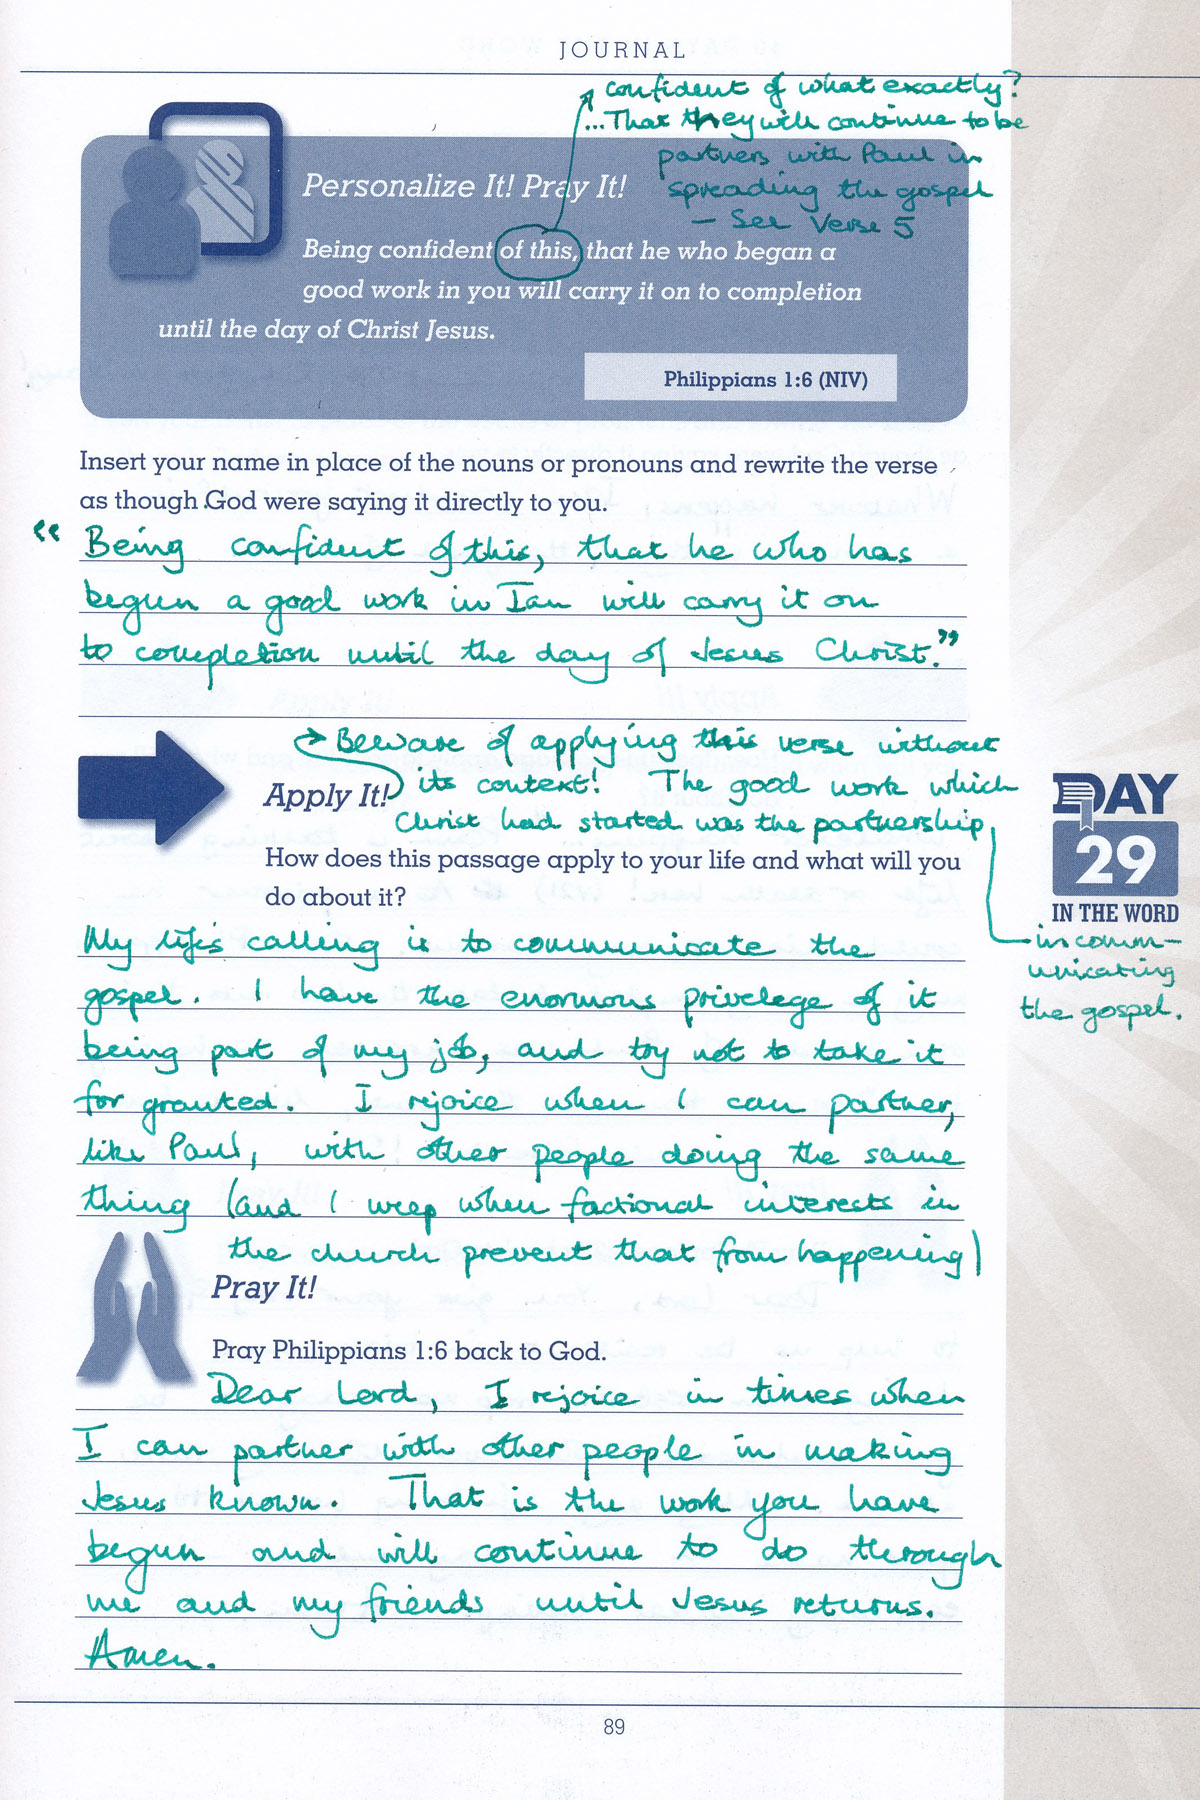 JOURNAL
confident of what exactly?
...That they will continue to be
partners with Paul in
spreading the gospel
- See Verse 5
Personalize It! Pray It!
Being confident of this, that he who began a
good work in you will carry it on to completion
until the day of Christ Jesus.
Philippians 1:6 (NIV)
Insert your name in place of the nouns or pronouns and rewrite the verse
as though God were saying it directly to you.
"Being confident of this, that he who has
begun a good work in Ian will carry it on
to completion until the day of Jesus Christ."
Beware of applying this verse without
its context! The good work which
Christ had started was the partnership
in comm-
unicating
the gospel.
Apply It!
How does this passage apply to your life and what will you
do about it?
DAY
29
IN THE WORD
My life's calling is to communicate the
gospel. I have the enormous privelege of it
being part of my job, and try not to take it
for granted. I rejoice when I can partner,
like Paul, with other people doing the same
thing (and I weep when factional interests in
the church prevent that from happening)
Pray It!
Pray Philippians 1:6 back to God.
Dear Lord, I rejoice in times when
I can partner with other people in making
Jesus known. That is the work you have
begun and will continue to do through
me and my friends until Jesus returns.
Amen.
89